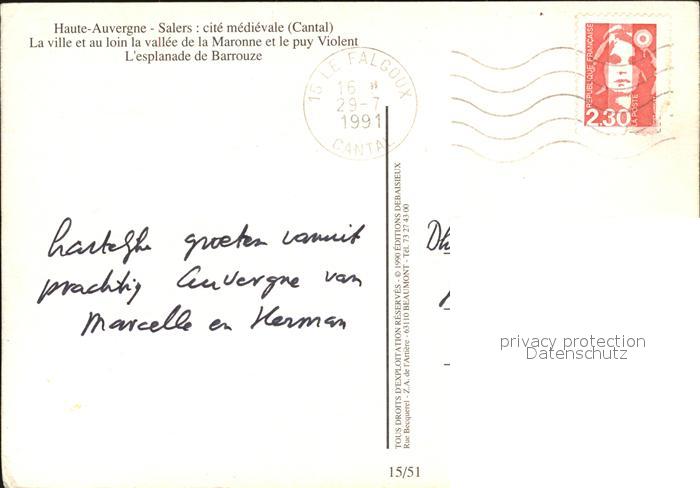 Haute-Auvergne - Salers : cité médiévale (Cantal)
La ville et au loin la vallée de la Maronne et le puy Violent
L'esplanade de Barrouze
15 LE FALGOUX
16 H
29-7
1991
CANTAL
RÉPUBLIQUE FRANÇAISE
2.30
LA POSTE
hartelijke groeten vanuit
prachtig Auvergne van
Marcelle en Herman
TOUS DROITS D'EXPLOITATION RÉSERVÉS - © 1990 ÉDITIONS DEBAISIEUX
Rue Becquerel - Z.A. de l'Artière - 63110 BEAUMONT - Tél. 73 27 43 00
privacy protection
Datenschutz
15/51